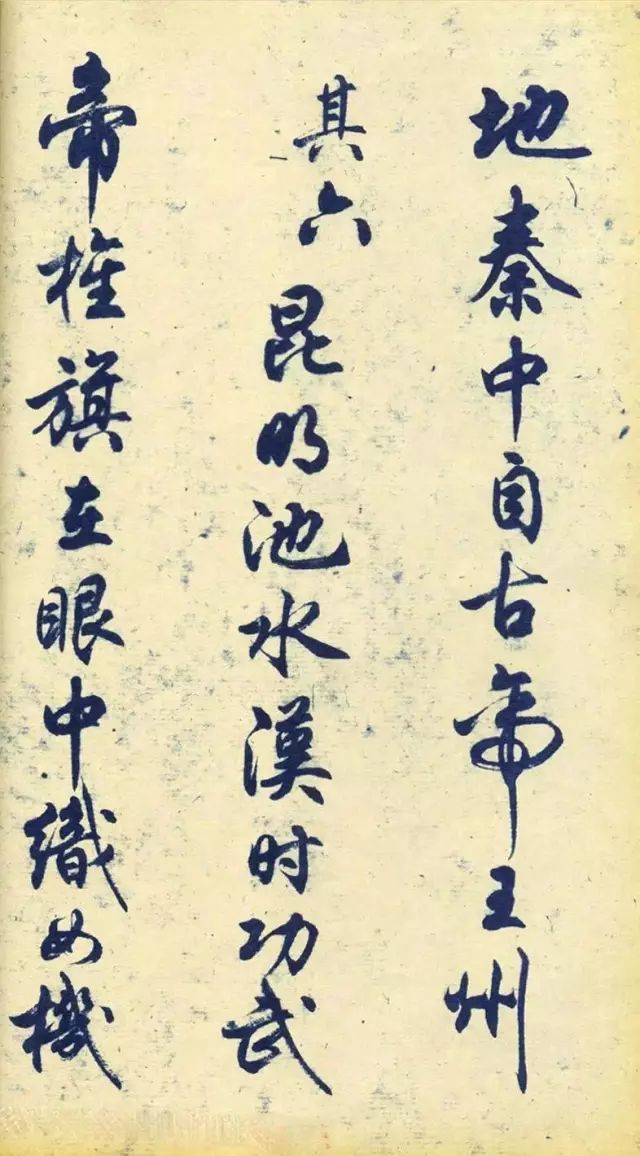 地秦中自古帝王州
其六昆明池水漢时功武
帝旌旗在眼中織女機